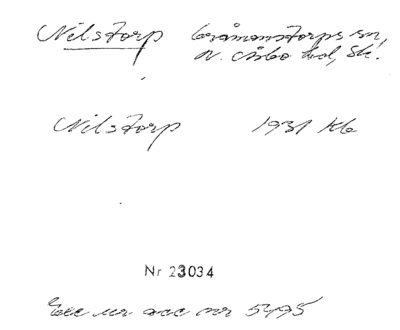 Nilstorp Gråmanstorps sn,
N. Åsbo hd, Sk.
Nilstorp 1931 Kb
Nr 23034
Exc ur acc nr 5495